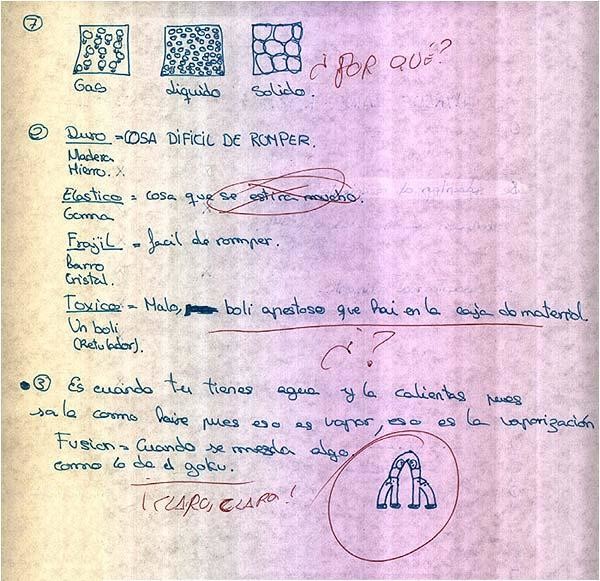 7
Gas liquido Solido. ¿POR QUÉ?
2 Duro = COSA DIFICIL DE ROMPER.
Madera
Hierro. X
Elastico = cosa que se estira mucho.
Goma
Frajil = facil de rommper.
Barro
Cristal.
Toxico = Malo, boli apestoso que hai en la caja do material
Un boli
(Rotulador).
¿?
3 Es cuándo tu tienes agua y la calientas pues
sale como haire pues eso es vapor, eso es la vaporización
Fusion = Cuando se mezcla algo
como lo de el goku.
¡CLARO, CLARO!